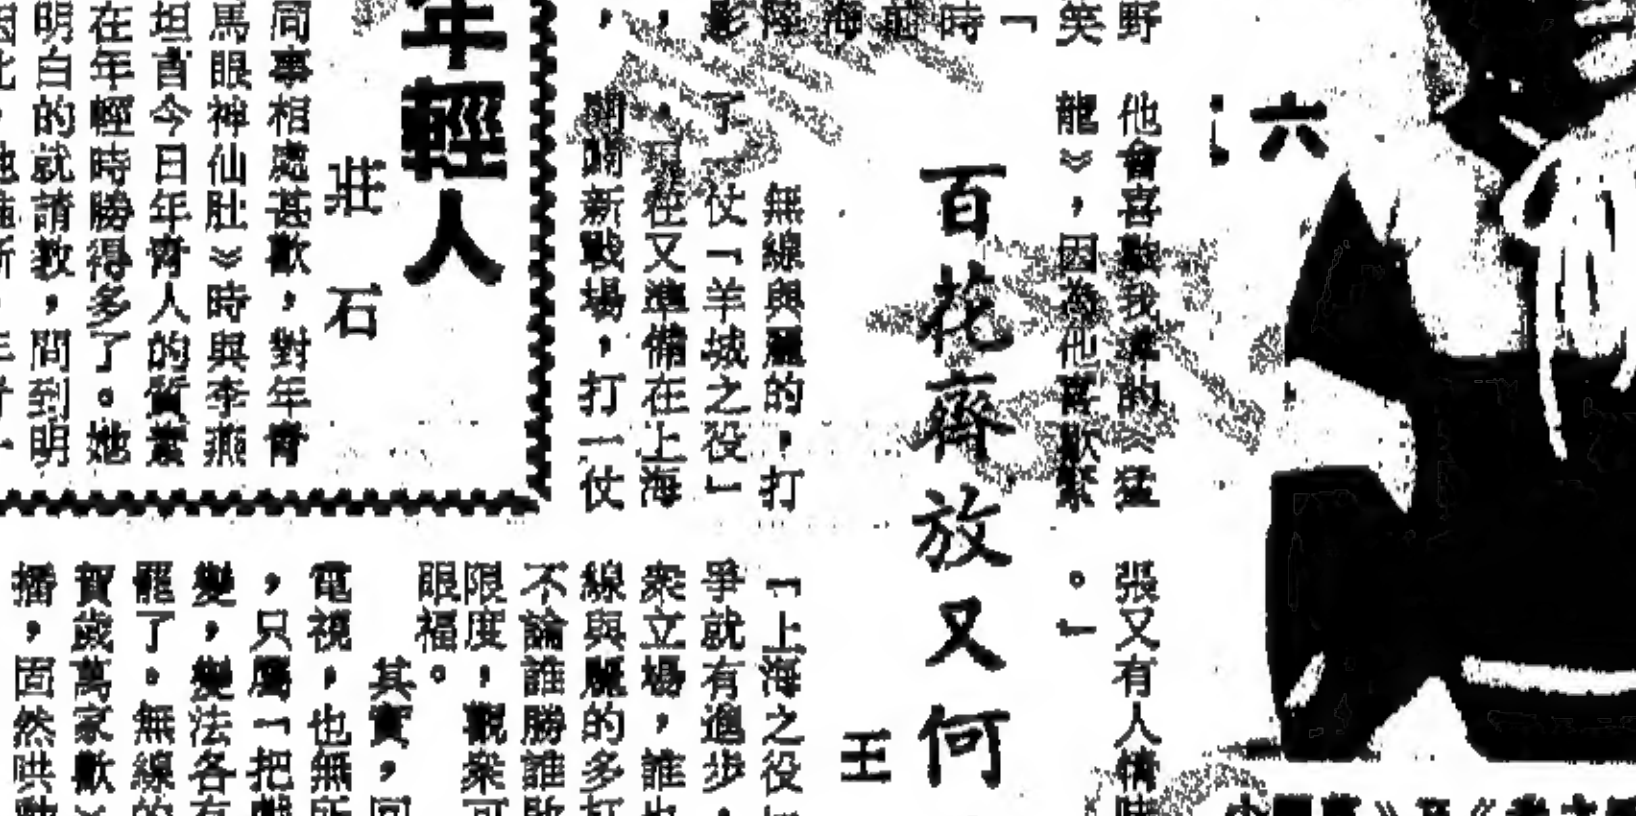 野
笑
「
時
他會喜歡我導的《猛
龍》，因為他喜歡緊
張又有人情味
。」
六
百花齊放又何
王
無線與麗的，打
了一仗「羊城之役」
，現在又準備在上海
開闢新戰場，打一仗
「上海之役
爭就有進步，
衆立場，誰
線與麗的多打
不論誰勝誰敗
限度，觀衆可
眼福。
其實，同
電視，也無所
，只屬「把戲
變，變法各有
罷了。無線的
賀歲萬家歡》
播，固然哄動
年輕人
莊石
同事相處甚歡，對年青
馬眼神仙肚》時與李燕
坦言今日年青人的質素
在年輕時勝得多了。她
明白的就請教，問到明